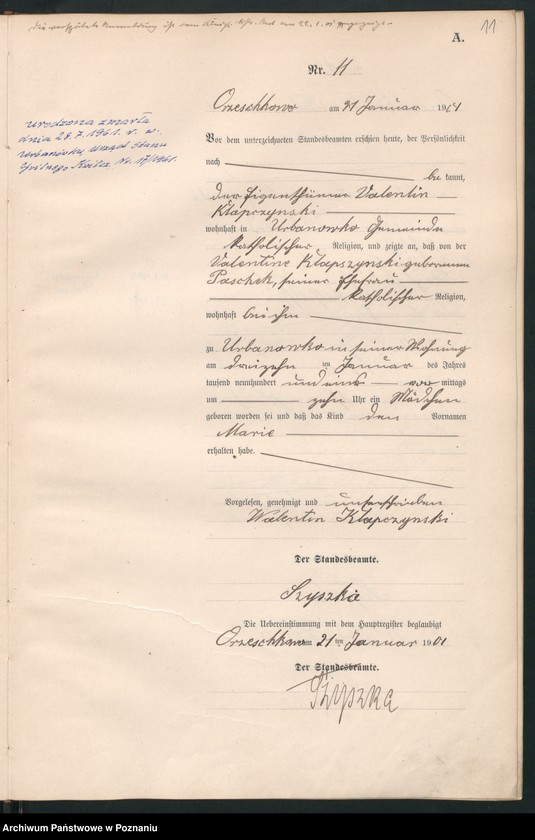 Die verspätete Anmeldung ist vom Königl. angezeigt.
11
A.
Nr. 11
Orzeschkowo am 21 Januar 1901
urodzona zmarła
dnia 28.7.1961 r. w.
Urbanówku, Urząd Stanu
Cywilnego Nr. 17/1961.
Vor dem unterzeichneten Standesbeamten erschien heute, der Persönlichkeit
nach
be kannt,
der Eigenthümer Valentin
Klapczynski
wohnhaft in Urbanowko Gemeinde
katholischer Religion, und zeigte an, daß von der
Valentine Klapszynski geborenen
Paschek, seiner Ehefrau
katholischer Religion,
wohnhaft bei ihm
zu Urbanowko in seiner Wohnung
am dreizehn ten Januar des Jahres
tausend neunhundert und eins vor mittags
um zehn Uhr ein Mädchen
geboren worden sei und daß das Kind den Vornamen
Marie
erhalten habe.
Vorgelesen, genehmigt und unterschrieben
Walentin Klapczynski
Der Standesbeamte.
Szyszka
Die Uebereinstimmung mit dem Hauptregister beglaubigt
Orzeschkowo am 21 ten Januar 1901
Der Standesbeamte.
Szyszka
Archiwum Państwowe w Poznaniu